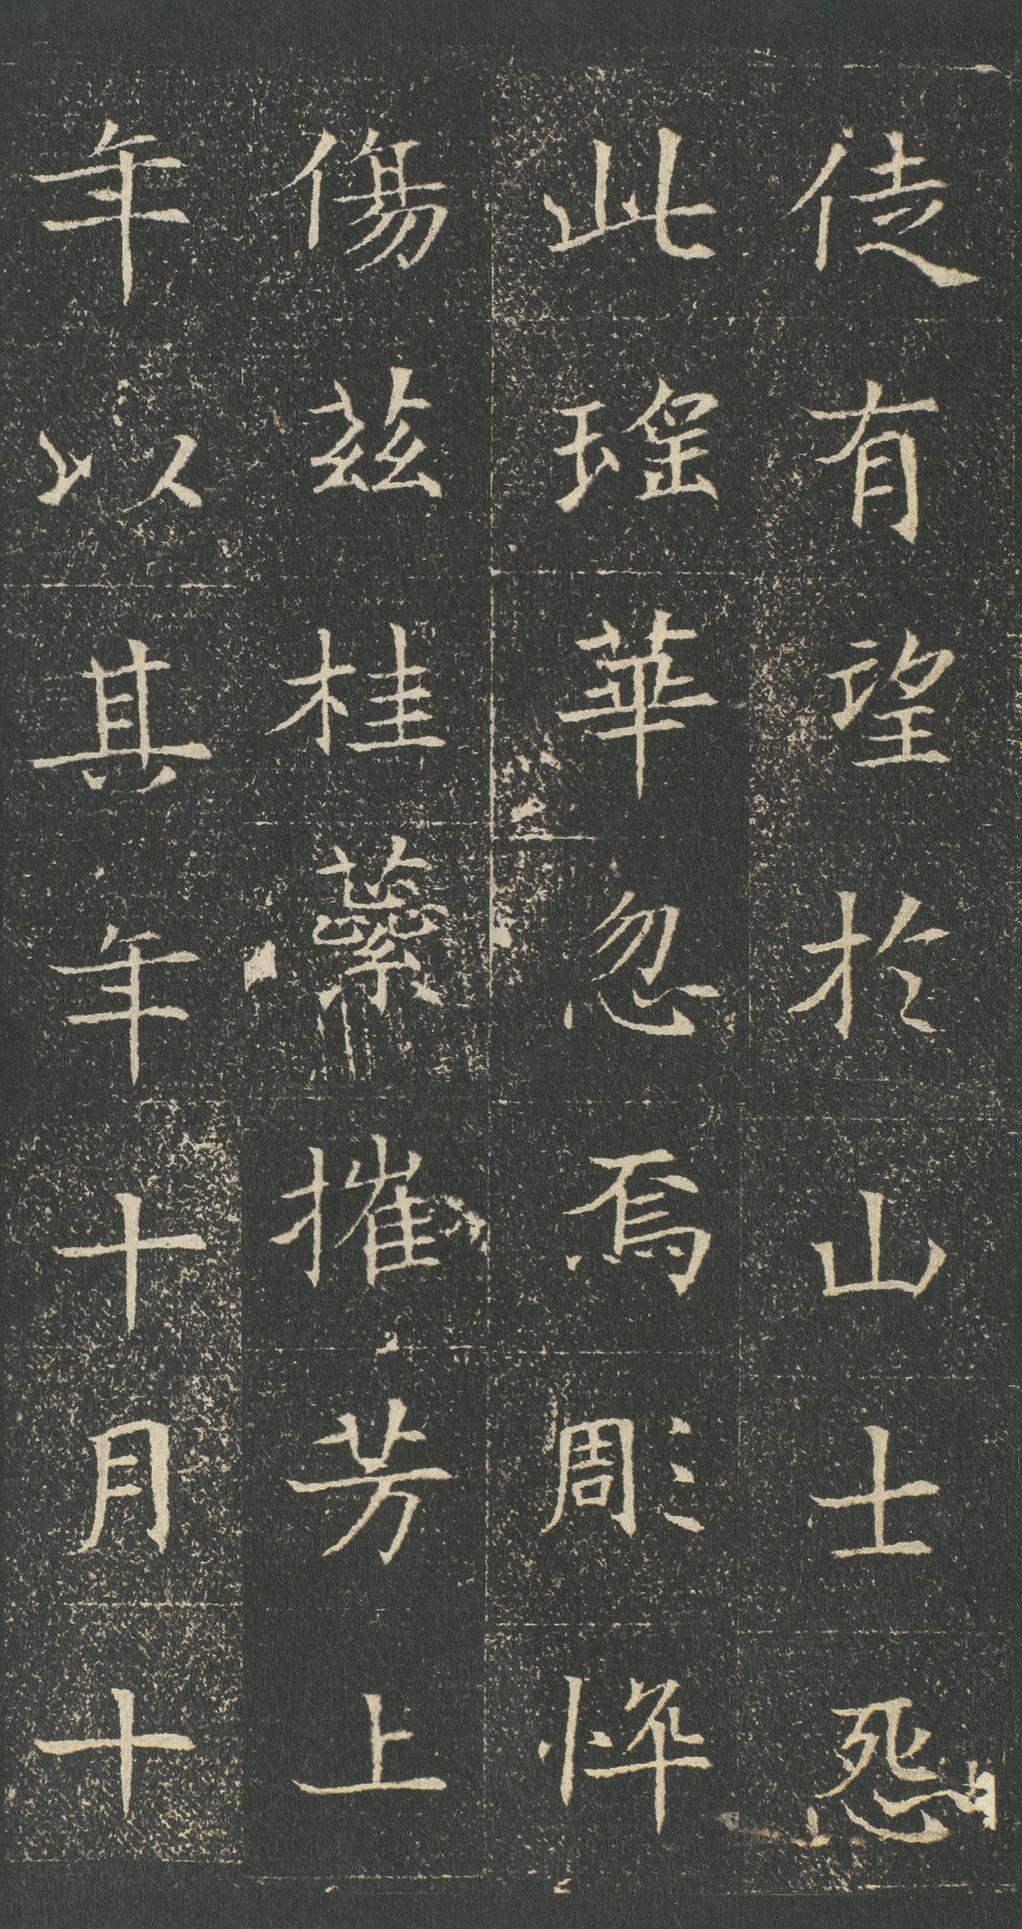 徒有望於山士怨
此瑤華忽焉彫悴
傷茲桂蘂摧芳上
年以其年十月十